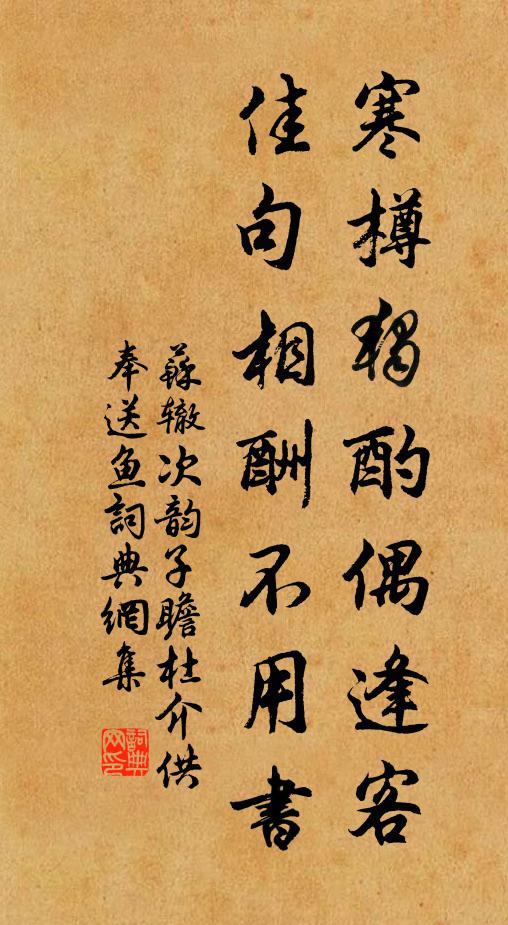 寒樽獨酌偶逢客
佳句相酬不用書
蘇辙次韵子瞻杜介供
奉送鱼詞典網集
詞典网印